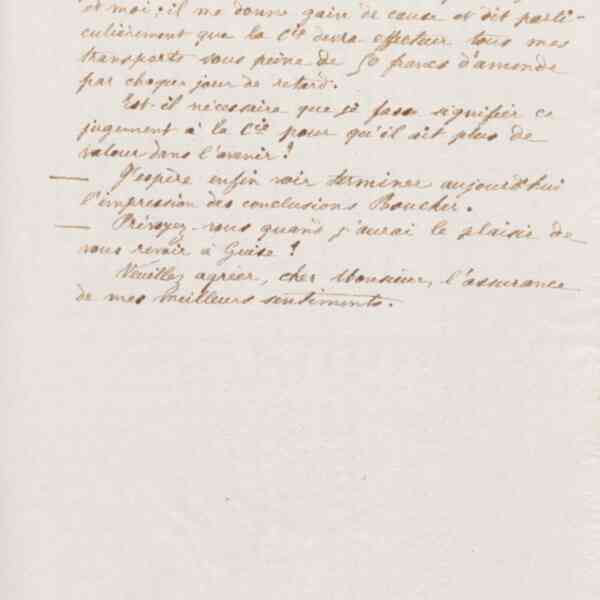 et moi ; il me donne gain de cause et dit parti-
culièrement que la Cie devra effectuer tous mes
transports sous peine de 50 francs d'amende
par chaque jour de retard.
Est-il nécessaire que je fasse signifier ce
jugement à la Cie pour qu'il ait plus de
valeur dans l'avenir ?
— J'espère enfin voir terminer aujourd'hui
l'impression des conclusions Boucher.
— Prévoyez-vous quand j'aurai le plaisir de
vous revoir à Guise ?
Veuillez agréer, cher Monsieur, l'assurance
de mes meilleurs sentiments.